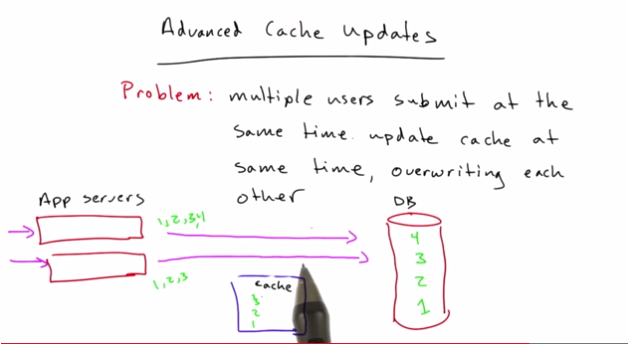 Advanced Cache Updates
Problem: multiple users submit at the
same time. update cache at
same time, overwriting each
other
App servers
DB
1,2,3,4
1,2,3
cache
3
2
1
4
3
2
1